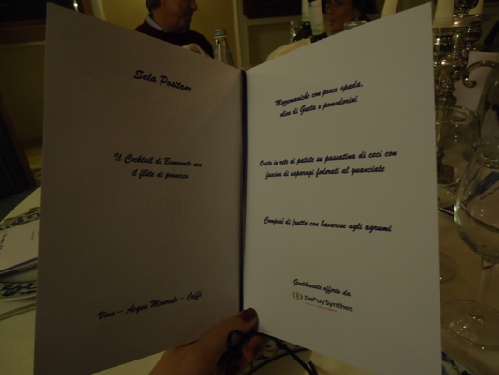 Sala Positano
Il Cocktail di Benvenuto con
il flûte di prosecco
Vino – Acqua Minerale – Caffè
Mezzemaniche con pesce spada,
olive di Gaeta e pomodorini
in rete di patate su passatina di ceci con
fascine di asparagi foderati al guanciale
Compisé di frutta con bavarese agli agrumi
Gentilmente offerto da
DePuy Synthes